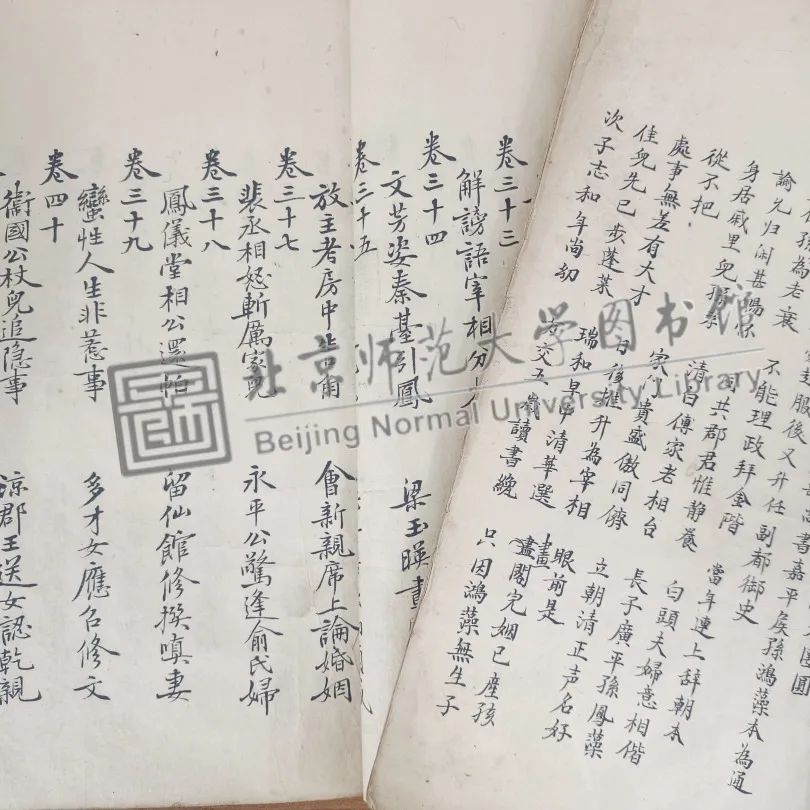 團圓
書嘉平矦孫鴻藻本為通
服後又升任副都御史
孫為老衰
不能理政拜金階
當年連上辞朝本
諭兄归闲甚暢怀
共郡君惟静養
白頭夫婦意相偕
身居戚里兒孫
清白傳家老相台
長子廣平孫鳳藻
從不把
貴盛傲同儕
立朝清正声名好
處事無差有大才
日後推升為宰相
眼前是
佳兒先已步蓬萊
瑞和早中清華選
畫閣完姻已產孩
次子志和年尚幼
女交五歲讀書纔
只因鴻藻無生子
卷三十三
解謗語宰相分
卷三十四
文芳姿秦臺引鳳
梁玉暎畫
卷三十五
放主考房中告甯
會新親席上論婚姻
卷三十七
裴丞相怒斬厲家兒
永平公驚逢俞氏婦
卷三十八
鳳儀堂相公還帕
留仙館修撰嗔妻
卷三十九
蠻性人生非惹事
多才女應召修文
卷四十
衞國公杖兒追隐事
涼郡王送女認乾親
北京师范大学图书馆
Beijing Normal University Library